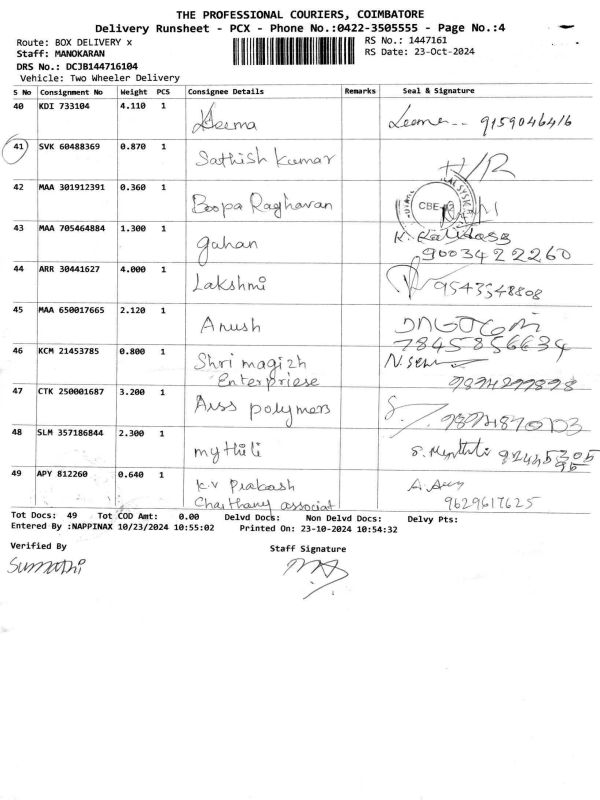 THE PROFESSIONAL COURIERS, COIMBATORE
Delivery Runsheet - PCX - Phone No.:0422-3505555 - Page No.:4
Route: BOX DELIVERY x RS No.: 1447161
Staff: MANOKARAN RS Date: 23-Oct-2024
DRS No.: DCJB144716104
Vehicle: Two Wheeler Delivery
S No Consignment No Weight PCS Consignee Details Remarks Seal & Signature
40 KDI 733104 4.110 1 9159046416
41 SVK 60488369 0.870 1 Sathish Kumar H/R
42 MAA 301912391 0.360 1 Boopa Raghavan CBE
43 MAA 705464884 1.300 1 gahan K. Kalidass
9003422260
44 ARR 30441627 4.000 1 Lakshmi 9543548808
45 MAA 650017665 2.120 1 Anush
7845856634
46 KCM 21453785 0.800 1 Shri magizh
Enterpriese
47 CTK 250001687 3.200 1 polymers
48 SLM 357186844 2.300 1 mythili
49 APY 812260 0.640 1 K.V Prakash
Chaithany associat 9629617625
Tot Docs: 49 Tot COD Amt: 0.00 Delvd Docs: Non Delvd Docs: Delvy Pts:
Entered By :NAPPINAX 10/23/2024 10:55:02 Printed On: 23-10-2024 10:54:32
Verified By Staff Signature
Sumathi